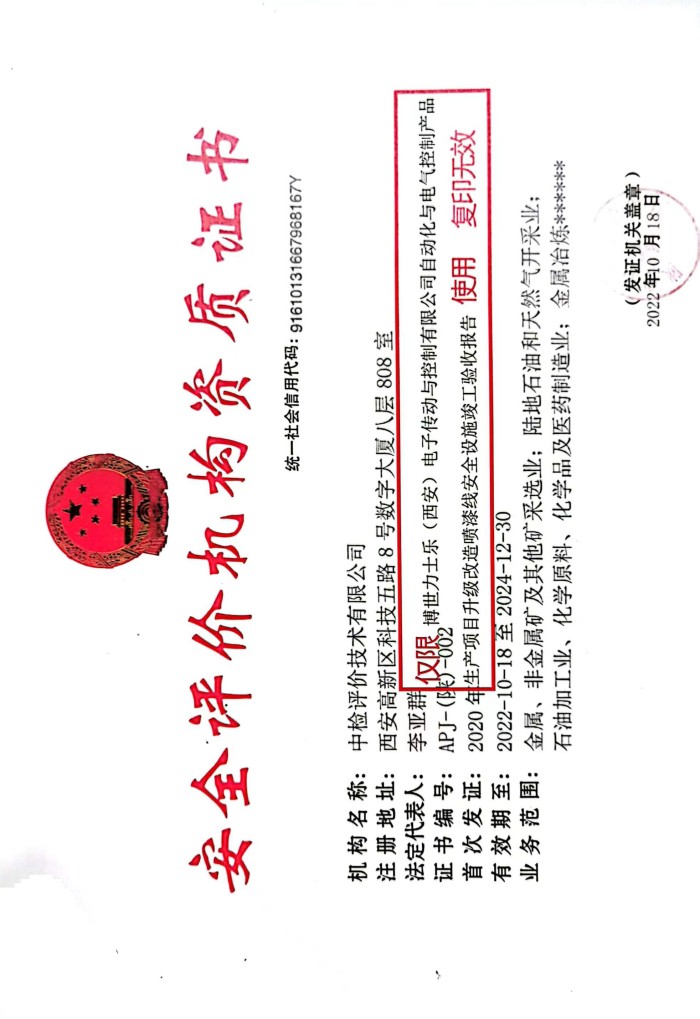 安全评价机构资质证书
统一社会信用代码：91610131667968167Y
机构名称：中检评价技术有限公司
注册地址：西安高新区科技五路8号数字大厦八层808室
法定代表人：李亚群
证书编号：APJ-(陕)-002
首次发证：2020年
有效期至：2022-10-18至2024-12-30
业务范围：金属、非金属矿及其他矿采选业；陆地石油和天然气开采业；
石油加工业、化学原料、化学品及医药制造业；金属冶炼******
仅限 博世力士乐（西安）电子传动与控制有限公司自动化与电气控制产品
生产项目升级改造喷漆线安全设施竣工验收报告 使用 复印无效
（发证机关盖章）
2022年10月18日